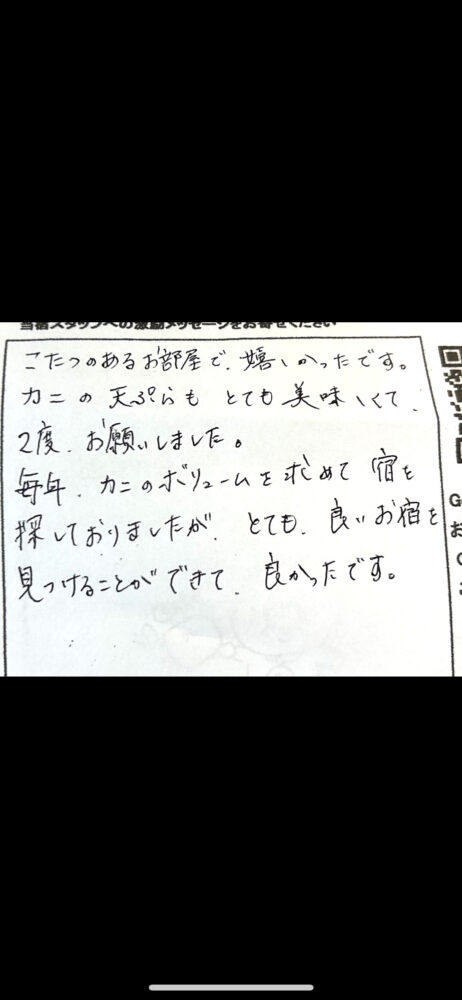 当宿スタッフへの激励メッセージをお寄せください
こたつのあるお部屋で、嬉しかったです。
カニの天ぷらもとても美味しくて、
2度、お願いしました。
毎年、カニのボリュームを求めて宿を
探しておりましたが、とても、良いお宿を
見つけることができて、良かったです。
G
お